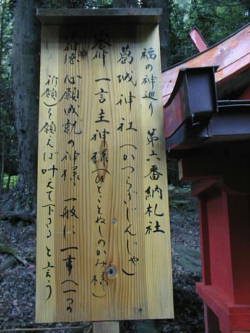 福の神巡り 第六番納札社
葛城神社(かつらぎじんじゃ)
祭神 一言主神様(ひとことぬしのかみ様)
御神徳は願成就の神様 一般に一事(一つの
祈願)を願えば叶えて下さると言う